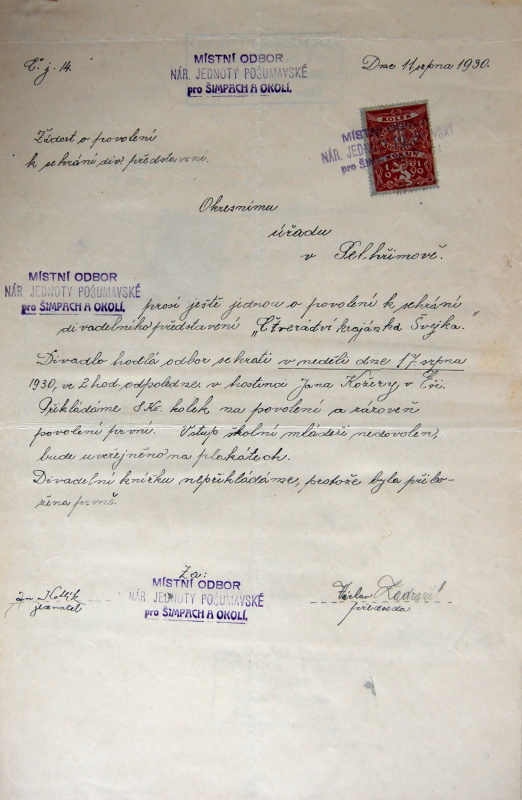 Č. j. 14.
MÍSTNÍ ODBOR
NÁR. JEDNOTY POŠUMAVSKÉ
pro ŠIMPACH A OKOLÍ.
Dne 11 srpna 1930.
KOLEK
MÍSTNÍ
NÁR. JEDNO
pro ŠI
Žádost o povolení
k sehrání div. představení.
Okresnímu
úřadu
v Pelhřimově.
MÍSTNÍ ODBOR
NÁR. JEDNOTY POŠUMAVSKÉ
pro ŠIMPACH A OKOLÍ.
prosí ještě jednou o povolení k sehrání
divadelního představení „Čtveráctví krajánka Švejka."
Divadlo hodlá odbor sehrati v neděli dne 17. srpna
1930, ve 2 hod. odpoledne v hostinci Jana Kožený v
Přikládáme 8 Kč. kolek na povolení a zároveň
povolení první. Vstup školní mládeži nedovolen,
bude uveřejněno na plakátech.
Divadelní knížku nepřikládáme, protože byla přilo-
žena prvně.
Za:
MÍSTNÍ ODBOR
NÁR. JEDNOTY POŠUMAVSKÉ
pro ŠIMPACH A OKOLÍ.
jednatel
Václav
předseda